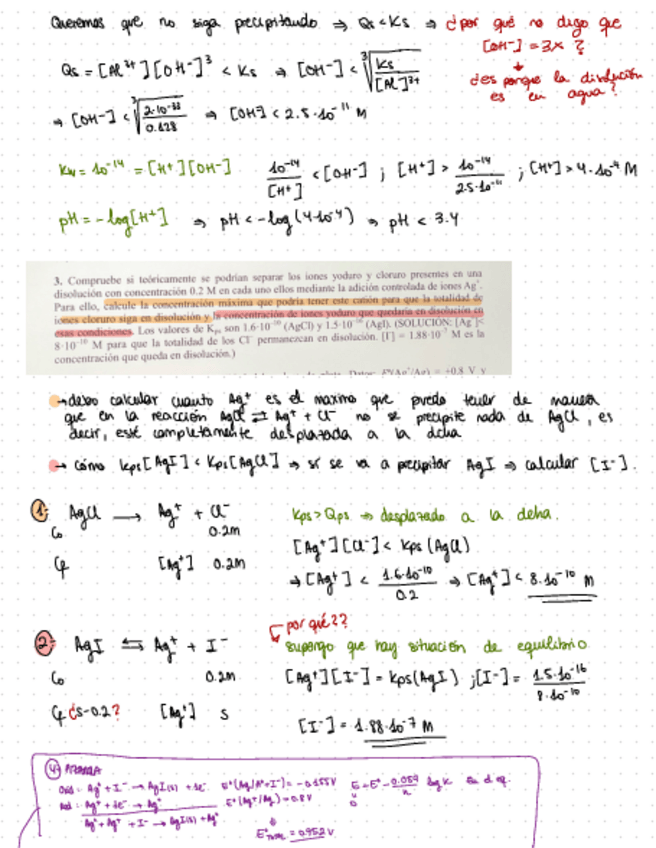 Queremos que no siga precipitando ⇒ Qs < Ks ⇒ ¿por qué no digo que
[OH-] = 3x ?
Qs = [Al3+][OH-]³ < Ks ⇒ [OH-] < ∛(Ks/[Al]3+)
¿es porque la disolución
es en agua?
⇒ [OH-] < ∛(2·10-33/0.128) ⇒ [OH-] < 2.5·10-11 M
Kw = 10-14 = [H+][OH-] 10-14/[H+] < [OH-] ; [H+] > 10-14/2.5·10-11 ; [H+] > 4·10-4 M
pH = -log[H+] ⇒ pH < -log(4·10-4) ⇒ pH < 3.4
3. Compruebe si teóricamente se podrían separar los iones yoduro y cloruro presentes en una
disolución con concentración 0.2 M en cada uno ellos mediante la adición controlada de iones Ag+.
Para ello, calcule la concentración máxima que podría tener este catión para que la totalidad de
iones cloruro siga en disolución y la concentración de iones yoduro que quedaría en disolución en
esas condiciones. Los valores de Kps son 1.6·10-10 (AgCl) y 1.5·10-16 (AgI). (SOLUCIÓN: [Ag+]<
8·10-10 M para que la totalidad de los Cl- permanezcan en disolución. [I-] = 1.88·10-7 M es la
concentración que queda en disolución.)
→ debo calcular cuanto Ag+ es el maximo que puedo tener de manera
que en la reacción AgCl ⇄ Ag+ + Cl- no se precipite nada de AgCl, es
decir, esté completamente desplazada a la dcha
→ cómo Kps[AgI] < Kps[AgCl] ⇒ sí se va a precipitar AgI ⇒ calcular [I-].
1: AgCl → Ag+ + Cl- Kps > Qps ⇒ desplazado a la dcha.
Co 0.2M
[Ag+][Cl-] < Kps (AgCl)
Cf [Ag+] 0.2M
⇒ [Ag+] < 1.6·10-10/0.2 ⇒ [Ag+] < 8·10-10 M
por qué??
2: AgI ⇆ Ag+ + I- supongo que hay situación de equilibrio
Co 0.2M [Ag+][I-] = Kps(AgI) ; [I-] = 1.5·10-16/8·10-10
Cf ¿s-0.2? [Ag+] s
[I-] = 1.88·10-7 M